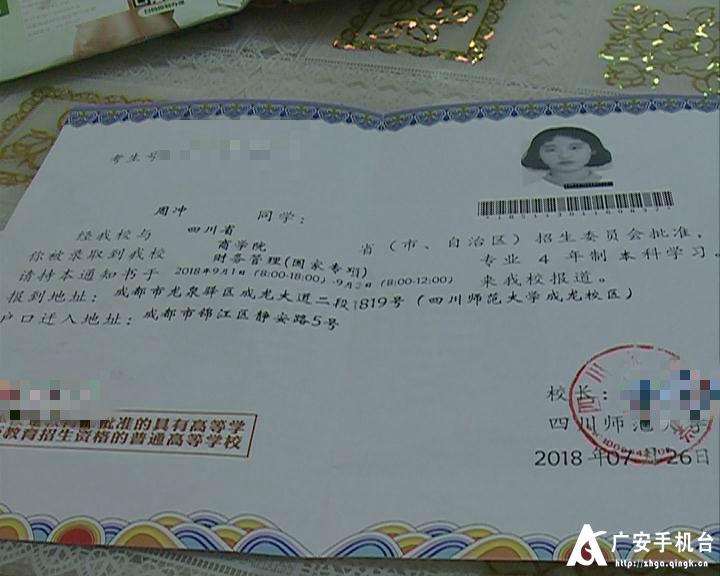 考生号
周冲 同学：
经我校与 四川省 省（市、自治区）招生委员会批准，
你被录取到我校 商学院 财务管理(国家专项) 专业 4 年制 本科学习。
请持本通知书于 2018年9月1日(8:00-18:00)-9月2日(8:00-12:00) 来我校报道。
报到地址：成都市龙泉驿区成龙大道二段1819号（四川师范大学成龙校区）
户口迁入地址：成都市锦江区静安路5号
校长：
四川师范大学
2018年07月26日
批准的具有高等学
教育招生资格的普通高等学校
广安手机台
http://zhga.qingk.cn